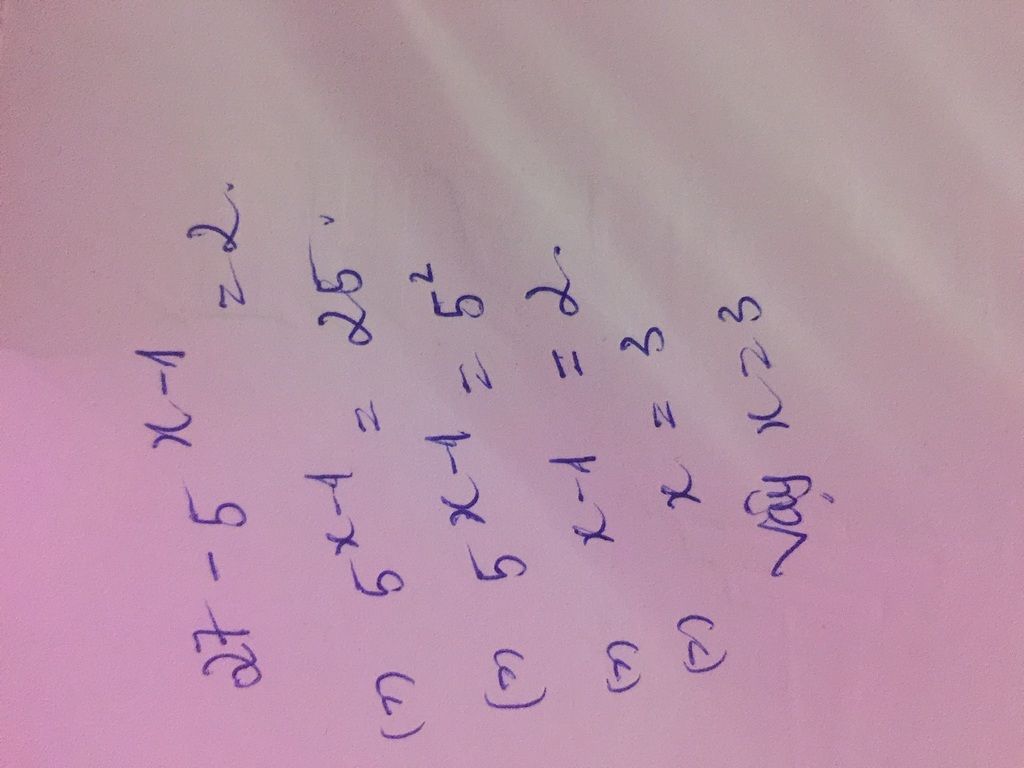 27 - 5^{x-1} = 2.
(=) 5^{x-1} = 25.
(=) 5^{x-1} = 5^{2}
(=) x-1 = 2.
(=) x = 3
Vậy x = 3